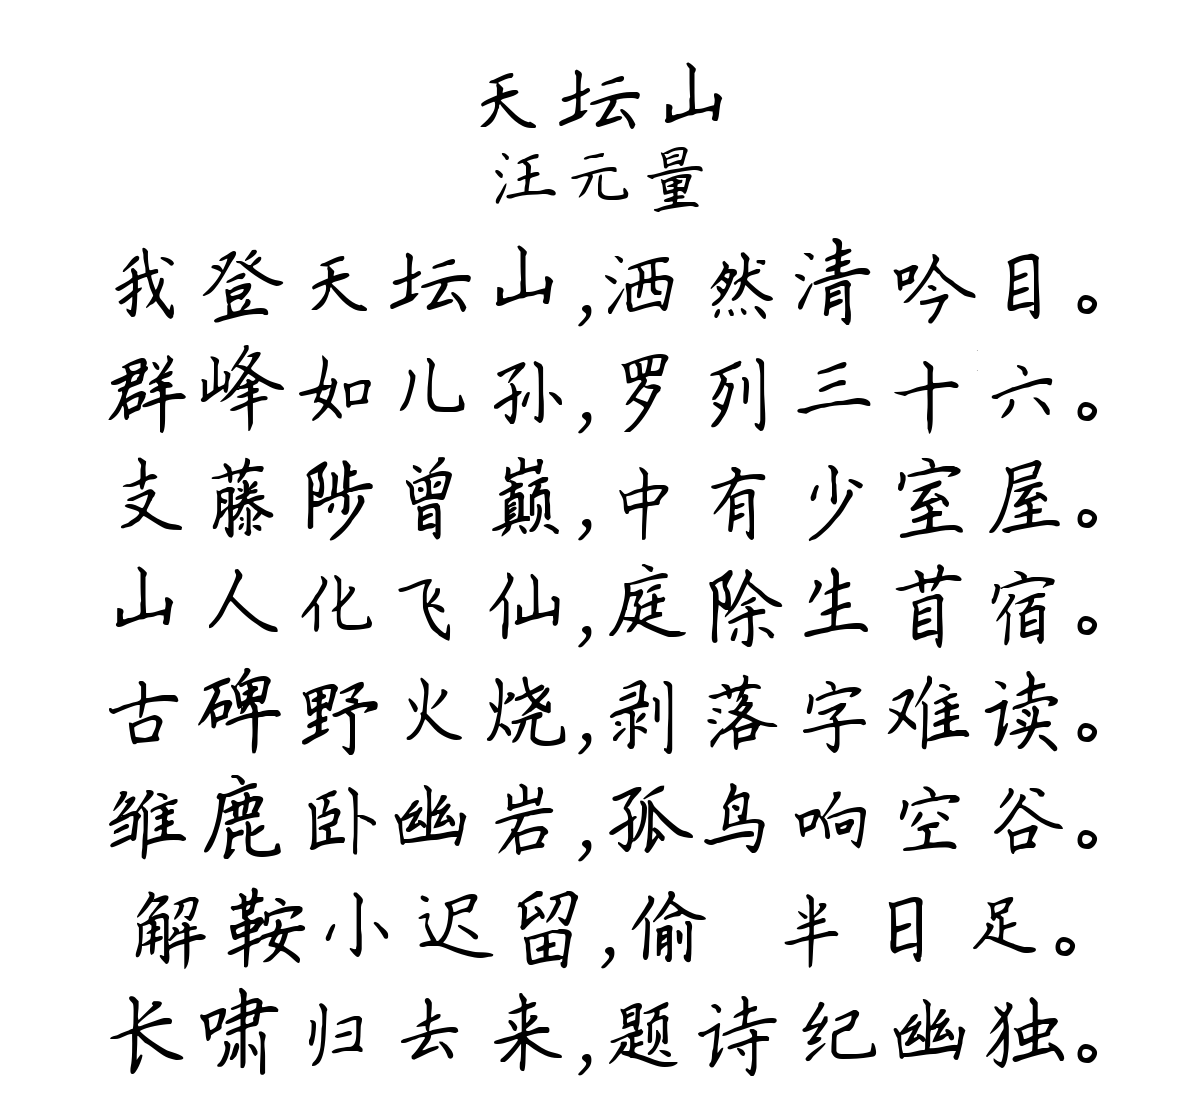 天坛山
汪元量
我登天坛山,洒然清吟目。
群峰如儿孙,罗列三十六。
支藤陟曾巅,中有少室屋。
山人化飞仙,庭除生苜宿。
古碑野火烧,剥落字难读。
雏鹿卧幽岩,孤鸟响空谷。
解鞍小迟留,偷 半日足。
长啸归去来,题诗纪幽独。